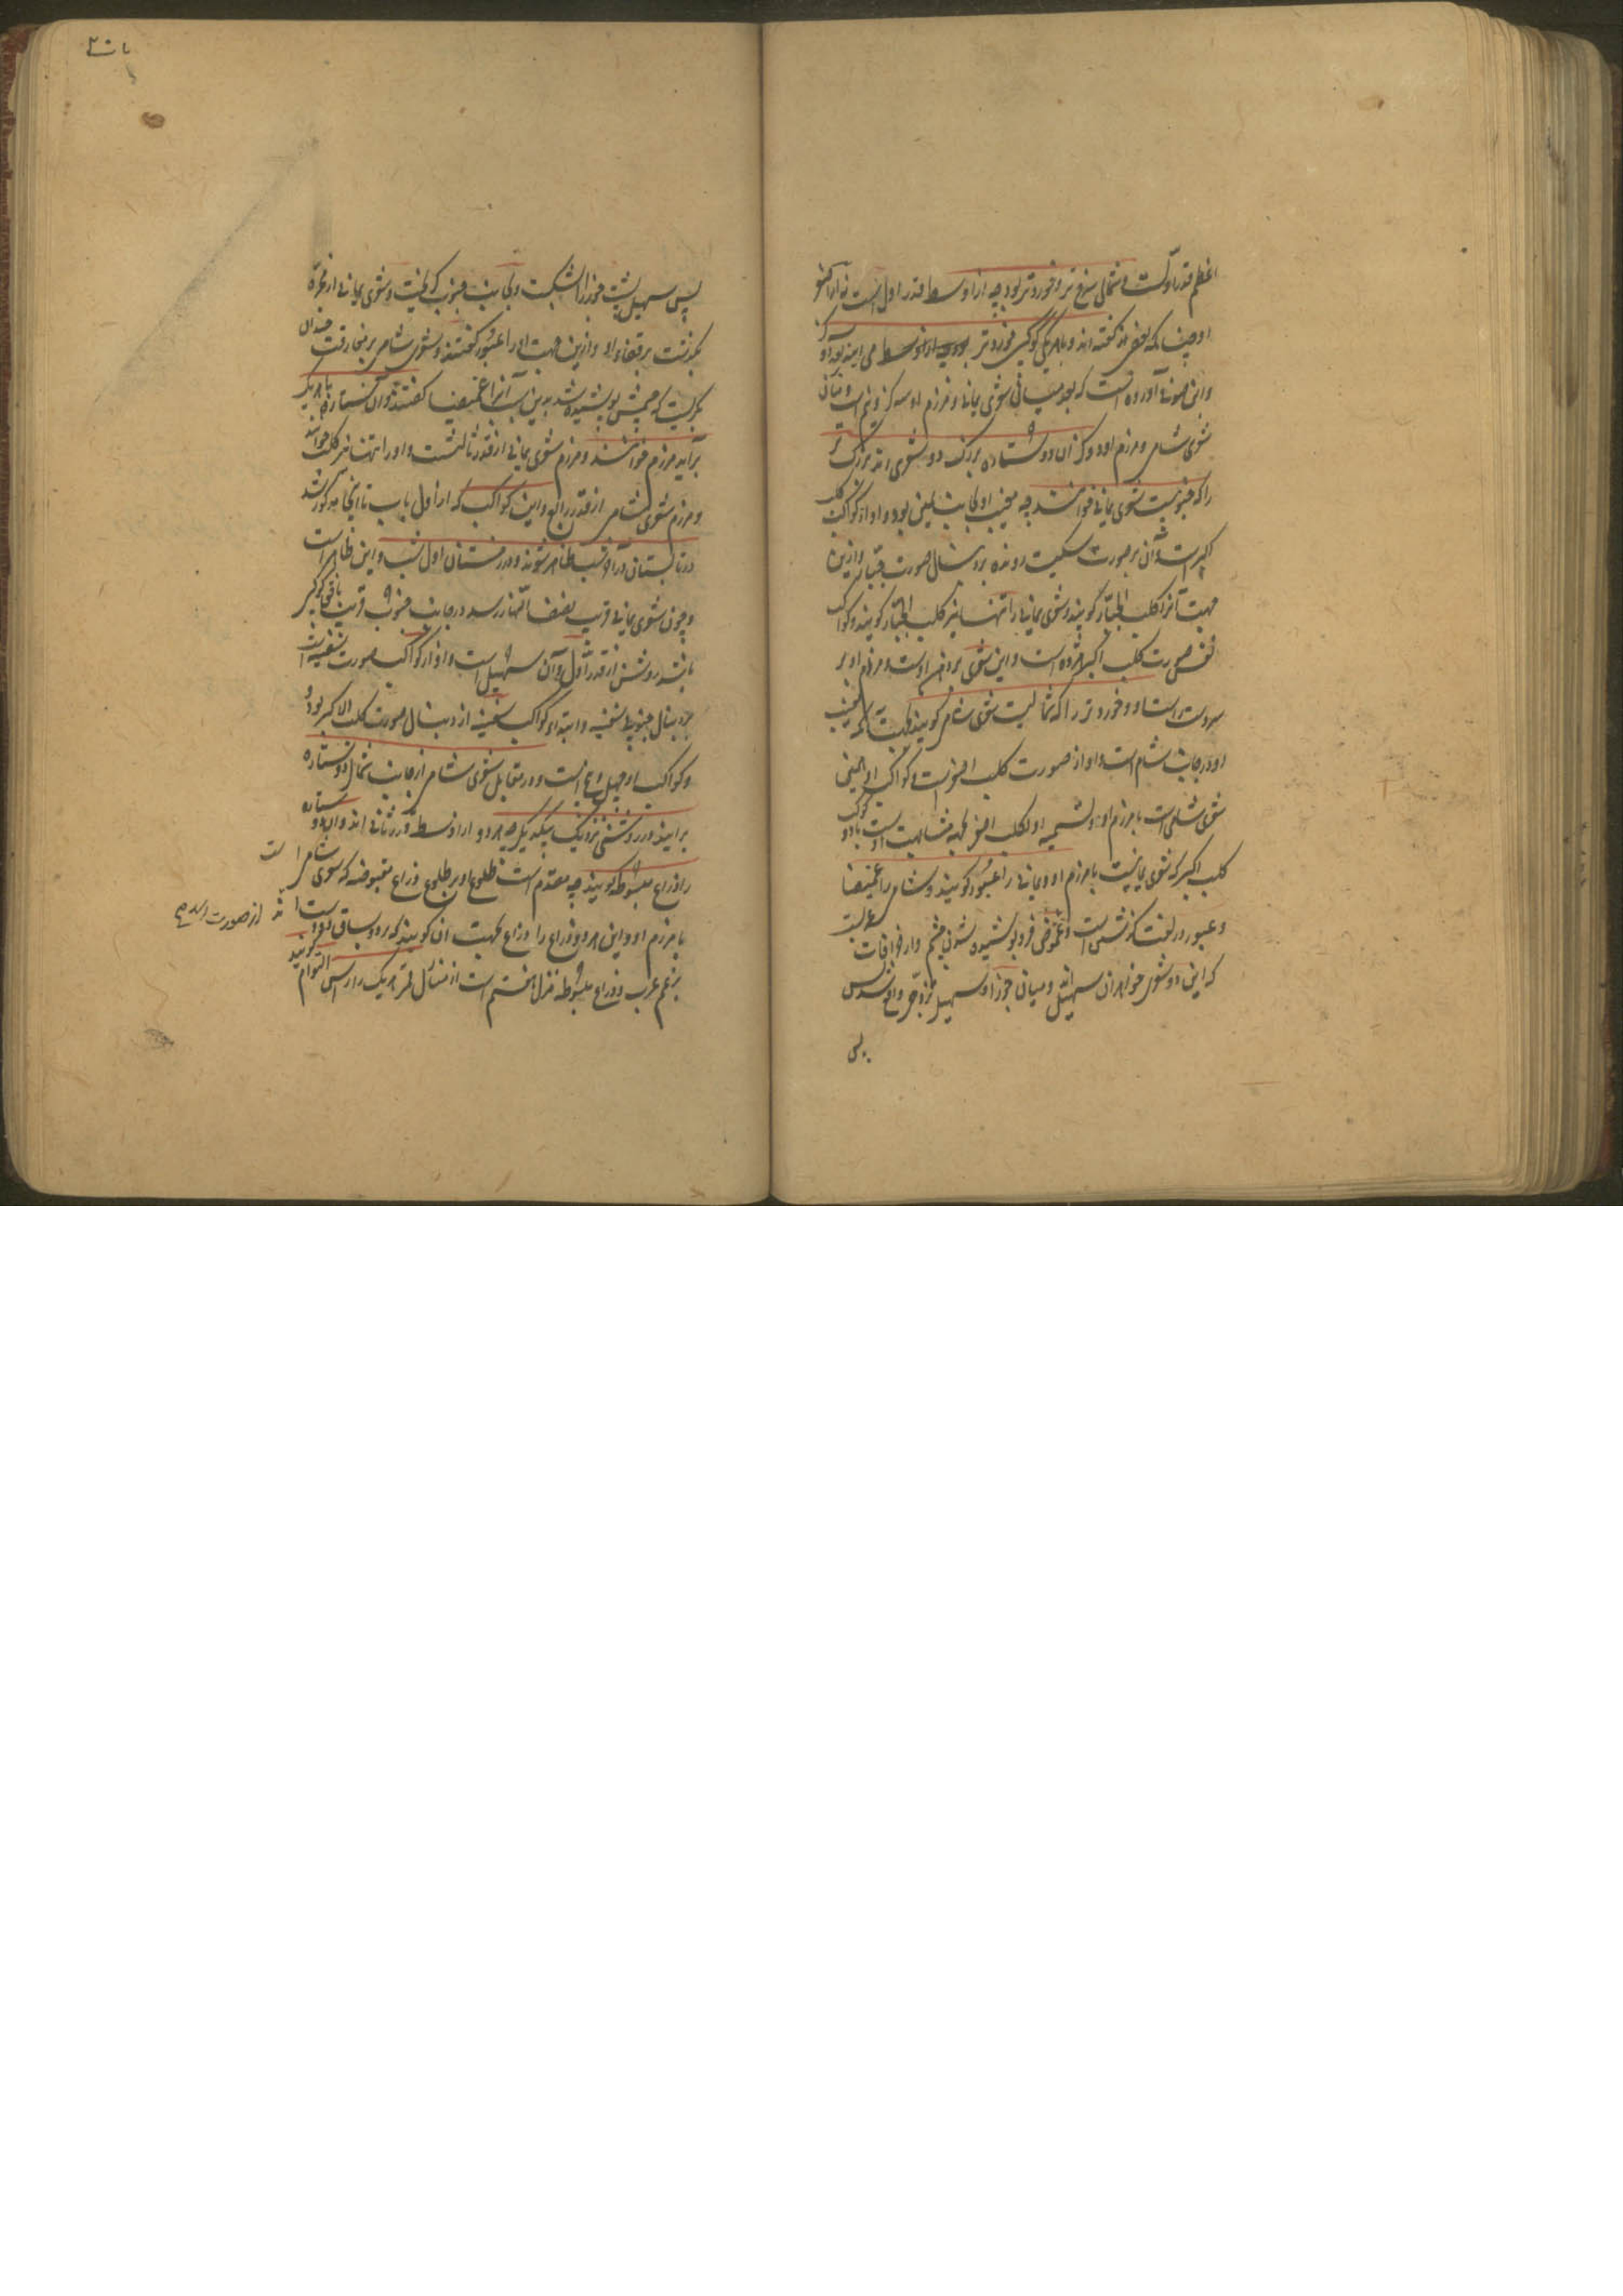 اعظم قدر اولست و شمالی سرخ تر و خوردتر بود چه از اوسط قدر اول است نه از اکبر
او چنانکه بعضی گفته اند و با هر یکی کوکبی خوردتر از اوسط می آیند بعد او
و این صوفی آورده است که بعد میان شعری یمانی و مرزم او سه گز و نیم است و میان
شعری شامی و مرزم او دو گز آن دو ستاره بزرگ دو شعری اند بزرگ تر
را که جنوبیست شعری یمانی خوانند چه مغیب او بجانب یمن بود و او از کواکب کلب
اکبر است و آن بر صورت سگیست دونده بر دنبال صورت جبار و ازین
جهت آنرا کلب الجبار گویند و شعری یمانی را تنها نیز کلب الجبار گویند و کواکب
نفس صورت کلب اکبر هژده است و این شعری بر دهن اوست و مرزم او بر
سر دست است و خوردتر را که شمالیست شعری شامی گویند بجهت آنکه مغیب
او در جانب شام است و او از صورت کلب اصغر است و کواکب او همین
شعری شامی است با مرزم او و تسمیه او بکلب اصغر بجهة مشابهت اوست با دو کوکب
کلب اکبر که شعری یمانیست با مرزم او و یمانی را عبور گویند و شامی را غمیصا
و عبور در لغت گذشتن است و غموض فرو پوشیده شدن چشم و از خرافات عربست
که این دو شعری خواهران سهیل اند و میان جوزا و سهیل تزوج واقع شد پس
پس
پس سهیل پشت جوزا را شکست و بجانب جنوب گریخت و شعری یمانی از مجره
بگذشت بر قفاء او و ازین جهت او را عبور گفتند و شعری شامی بر مفارقت چندان
بگریست که چشمش پوشیده شد بدین سبب آنرا غمیصا گفتند و آن ستاره که با هر یک
برآید مرزم خوانند و مرزم شعری یمانی از قدر ثالثست و او را تنها نیز کلب خوانند
و مرزم شعری شامی از قدر رابع و این کواکب که از اول باب تا اینجا مذکور شد
در تابستان در آخر شب ظاهر شوند و در زمستان اول شب و این ظاهر است
و چون شعری یمانی قریب بنصف النهار رسد در جانب جنوب قریب بافق کوکبی
باشد روشن از قدر اول و آن سهیل است و او از کواکب صورت سفینه است
بر دنبال جنوبی سفینه و ابتداء کواکب سفینه از دنبال صورت کلب الاکبر بود
و کواکب او چهل و پنج است و در مقابل شعری شامی از جانب شمال دو ستاره
برآیند در روشنی نزدیک بیکدیگر چه هر دو از اوسط قدر ثانی اند و آن دو ستاره
را ذراع مبسوطه گویند چه مقدم است طلوع او بر طلوع ذراع مقبوضه که شعری شامی است
با مرزم او و این هر دو ذراع را ذراع بجهت آن گویند که بر دو ساق
از صورت اسد
بزعم عرب و ذراع مبسوطه منزل هفتم است از منازل قمر و هر یک را رأس التوأم گویند